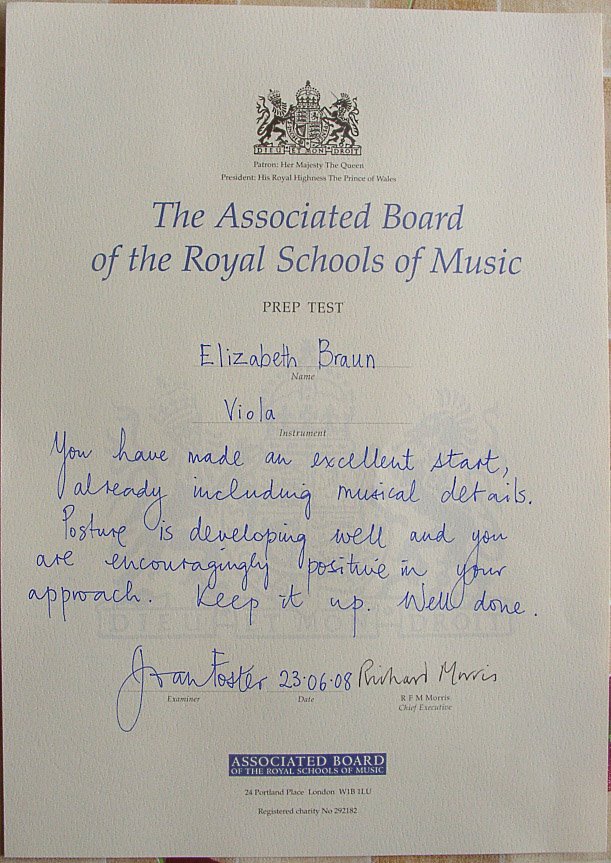 DIEU ET MON DROIT
Patron: Her Majesty The Queen
President: His Royal Highness The Prince of Wales
The Associated Board
of the Royal Schools of Music
PREP TEST
Elizabeth Braun
Name
Viola
Instrument
You have made an excellent start,
already including musical details.
Posture is developing well and you
are encouragingly positive in your
approach. Keep it up. Well done.
DIEU ET MON DROIT
Foster 23·06·08 Richard Morris
Examiner Date R F M Morris
Chief Executive
ASSOCIATED BOARD
OF THE ROYAL SCHOOLS OF MUSIC
24 Portland Place London W1B 1LU
Registered charity No 292182